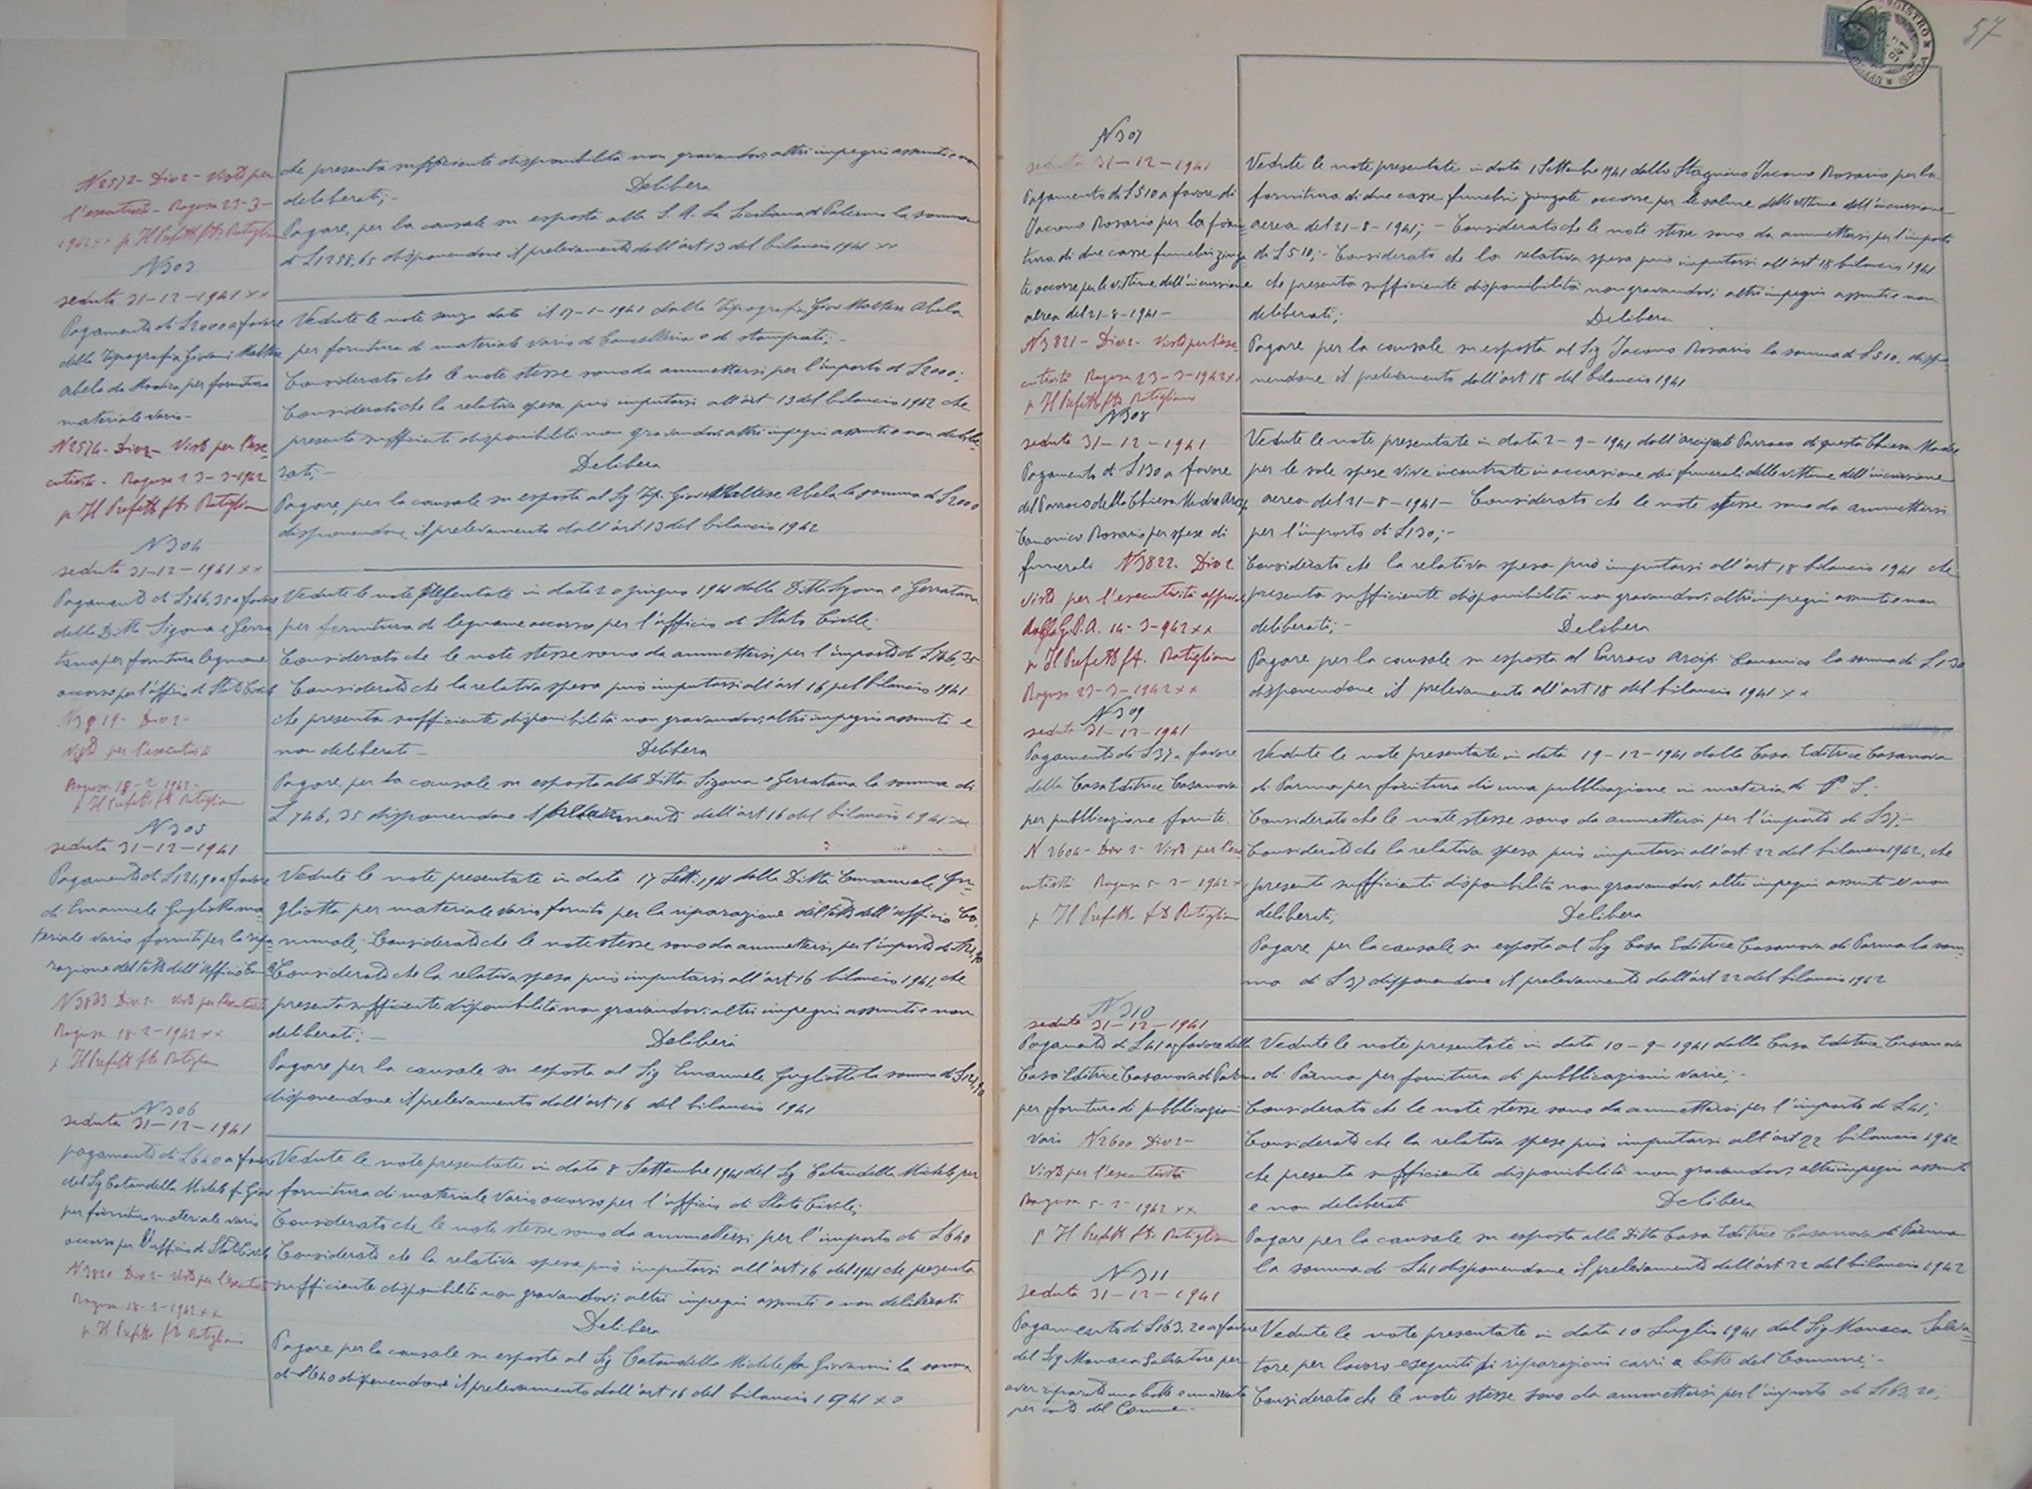 che presenta sufficiente disponibilità non gravandovi altri impegni assunti e non
deliberati;-
Delibera
Pagare, per la causale su esposta alla S. A. La Siciliana di Palermo la somma
di £1258,65 disponendone il prelevamento dall'art 13 del bilancio 1941 xx
N2572- Div 2- Visto per
l'esecutività- Ragusa 23-3-
1942 xx p Il Prefetto fto Ratiglia
N303
seduta 31-12-1941 xx
Pagamento di £2000 a favore
della Tipografia Giovanni Maltese
Abela da Modica per fornitura
materiale vario-
N2574- Div 2- Visto per l'ese-
cutività- Ragusa 23-3-1942
p Il Prefetto fto Ratiglia
Vedute le note senza data il 17-1-1941 dalla Tipografia Giov Maltese Abela
per fornitura di materiale vario di Cancelleria o di stampati;-
Considerato che le note stesse sono da ammettersi per l'importo di £2000;
Considerato che la relativa spesa può imputarsi all'art 13 del bilancio 1942 che
presenta sufficiente disponibilità non gravandovi altri impegni assunti e non delibe-
rati;-
Delibera
Pagare, per la causale su esposta al Sig Tip. Giov Maltese Abela la somma di £2000
disponendone il prelevamento dall'art. 13 del bilancio 1942
N304
seduta 31-12-1941 xx
Pagamento di £746,35 a favore
della Ditta Sigona e Gerra
tana per fornitura legname
occorso per l'ufficio di Stato Civile
N3819- Div 2-
Visto per l'esecutività
Ragusa 18-2-1942-
p Il Prefetto fto Ratiglia
Vedute le note presentate in data 20 giugno 1941 dalla Ditta Sigona e Gerratana
per fornitura di legname occorso per l'ufficio di Stato Civile;
Considerato che le note stesse sono da ammettersi per l'importo di £746,35
Considerato che la relativa spesa può imputarsi all'art 16 pel bilancio 1941
che presenta sufficiente disponibilità non gravandovi altri impegni assunti e
non deliberati-
Delibera
Pagare, per la causale su esposta alla Ditta Sigona e Gerratana la somma di
£ 746,35 disponendone il prelevamento dall'art 16 del bilancio 1941 xx
N305
seduta 31-12-1941
Pagamento di £121,90 a favore
di Emanuele Gugliotta ma
teriale vario fornito per la ripa
razione del tetto dell'ufficio Com
N3833 Div 2- Visto per l'esecutività
Ragusa 18-2-1942 xx
p Il Prefetto fto Ratiglia
Vedute le note presentate in data 17 Sett. 1941 dalla Ditta Emanuele Gu-
gliotta per materiale vario fornito per la riparazione del tetto dell'ufficio Co-
munale; Considerato che le note stesse sono da ammettersi per l'importo di £121,90
Considerato che la relativa spesa può imputarsi all'art 16 bilancio 1941, che
presenta sufficiente disponibilità non gravandovi altri impegni assunti e non
deliberati:-
Delibera
Pagare per la causale su esposta al Sig Emanuele Gugliotta la somma di £121,90
disponendone il prelevamento dall'art 16 del bilancio 1941
N306
seduta 31-12-1941
pagamento di £640 a favore
del Sig Cataudella Michele fu Giov
per fornitura materiale vario
occorso per l'ufficio di Stato Civile
N3820 Div 2- Visto per l'esecutività
Ragusa 18-2-1942 xx
p Il Prefetto fto Ratiglia
Vedute le note presentate in data 8 Settembre 1941 del Sig Cataudella Michele per
fornitura di materiale vario occorso per l'ufficio di Stato Civile;
Considerato che le note stesse sono da ammettersi per l'importo di £640
Considerato che la relativa spesa può imputarsi all'art 16 del 1941 che presenta
sufficiente disponibilità non gravandovi altri impegni assunti e non deliberati
Delibera
Pagare per la causale su esposta al Sig Cataudella Michele fu Giovanni la somma
di £640 disponendone il prelevamento dall'art 16 del bilancio 1941 xx
57
N307
seduta 31-12-1941
Pagamento di £510 a favore di
Iacono Rosario per la forni
tura di due casse funebri zinga
te occorse per le vittime dell'incursione
aerea del 21-8-1941-
N3821- Div 2- Visto per l'ese-
cutività Ragusa 23-3-1942 xx
p Il Prefetto fto Ratiglia
Vedute le note presentate in data 1 Settembre 1941 dallo Stagnino Iacono Rosario per la
fornitura di due casse funebri zingate occorse per le salme delle vittime dell'incursione
aerea del 21-8-1941;- Considerato che le note stesse sono da ammettersi per l'importo
di £510;- Considerato che la relativa spesa può imputarsi all'art 18 bilancio 1941
che presenta sufficiente disponibilità non gravandovi altri impegni assunti e non
deliberati;
Delibera
Pagare per la causale su esposta al Sig Iacono Rosario la somma di £510, dispo-
nendone il prelevamento dall'art 18 del bilancio 1941
N308
seduta 31-12-1941
Pagamento di £130 a favore
del Parroco della Chiesa Madre Arcip
Canonico Rosario per spese di
funerali N3822. Div 2
Visto per l'esecutività approvata
dalla G.P.A. 14-3-942 xx
p Il Prefetto fto Ratiglia
Ragusa 23-3-1942 xx
Vedute le note presentate in data 2-9-1941 dall'arcip Parroco di questa Chiesa Madre
per le sole spese vive incontrate in occasione dei funerali delle vittime dell'incursione
aerea del 21-8-1941- Considerato che le note stesse sono da ammettersi
per l'importo di £130;-
Considerato che la relativa spesa può imputarsi all'art 18 bilancio 1941 che
presenta sufficiente disponibilità non gravandovi altri impegni assunti e non
deliberati;-
Delibera
Pagare per la causale su esposta al Parroco Arcip. Canonico la somma di £130
disponendone il prelevamento all'art 18 del bilancio 1941 xx
N309
seduta 31-12-1941
Pagamento di £37 a favore
della Casa Editrice Casanova
per pubblicazione fornite
N 2604- Div 2- Visto per l'ese
cutività Ragusa 5-2-1942 x
p Il Prefetto fto Ratiglia
Vedute le note presentate in data 19-12-1941 dalla Casa Editrice Casanova
di Parma per fornitura di una pubblicazione in materia di P. S.
Considerato che le note stesse sono da ammettersi per l'importo di £37;-
Considerato che la relativa spesa può imputarsi all'art. 22 del bilancio 1942, che
presenta sufficiente disponibilità non gravandovi altri impegni assunti e non
deliberati;
Delibera
Pagare per la causale su esposta al Sig Casa Editrice Casanova di Parma la som-
ma di £37 disponendone il prelevamento dall'art 22 del bilancio 1942
N310
seduta 31-12-1941
Pagamento di £41 a favore della
Casa Editrice Casanova di Parma
per fornitura di pubblicazioni
varie N2600 Div 2-
Visto per l'esecutività
Ragusa 5-2-1942 xx
p Il Prefetto fto Ratiglia
Vedute le note presentate in data 10-9-1941 dalla Casa Editrice Casanova
di Parma per fornitura di pubblicazioni varie;-
Considerato che le note stesse sono da ammettersi per l'importo di £41;
Considerato che la relativa spesa può imputarsi all'art 22 bilancio 1942
che presenta sufficiente disponibilità non gravandovi altri impegni assunti
e non deliberati
Delibera
Pagare per la causale su esposta alla Ditta Casa Editrice Casanova di Parma
la somma di £41 disponendone il prelevamento dall'art 22 del bilancio 1942
N311
seduta 31-12-1941
Pagamento di £163.20 a favore
del Sig Monaca Salvatore per
aver riparato una botte
per conto del Comune-
Vedute le note presentate in data 10 Luglio 1941 dal Sig Monaca Salva-
tore per lavoro eseguiti di riparazioni carri e botte del Comune;-
Considerato che le note stesse sono da ammettersi per l'importo di £163.20;